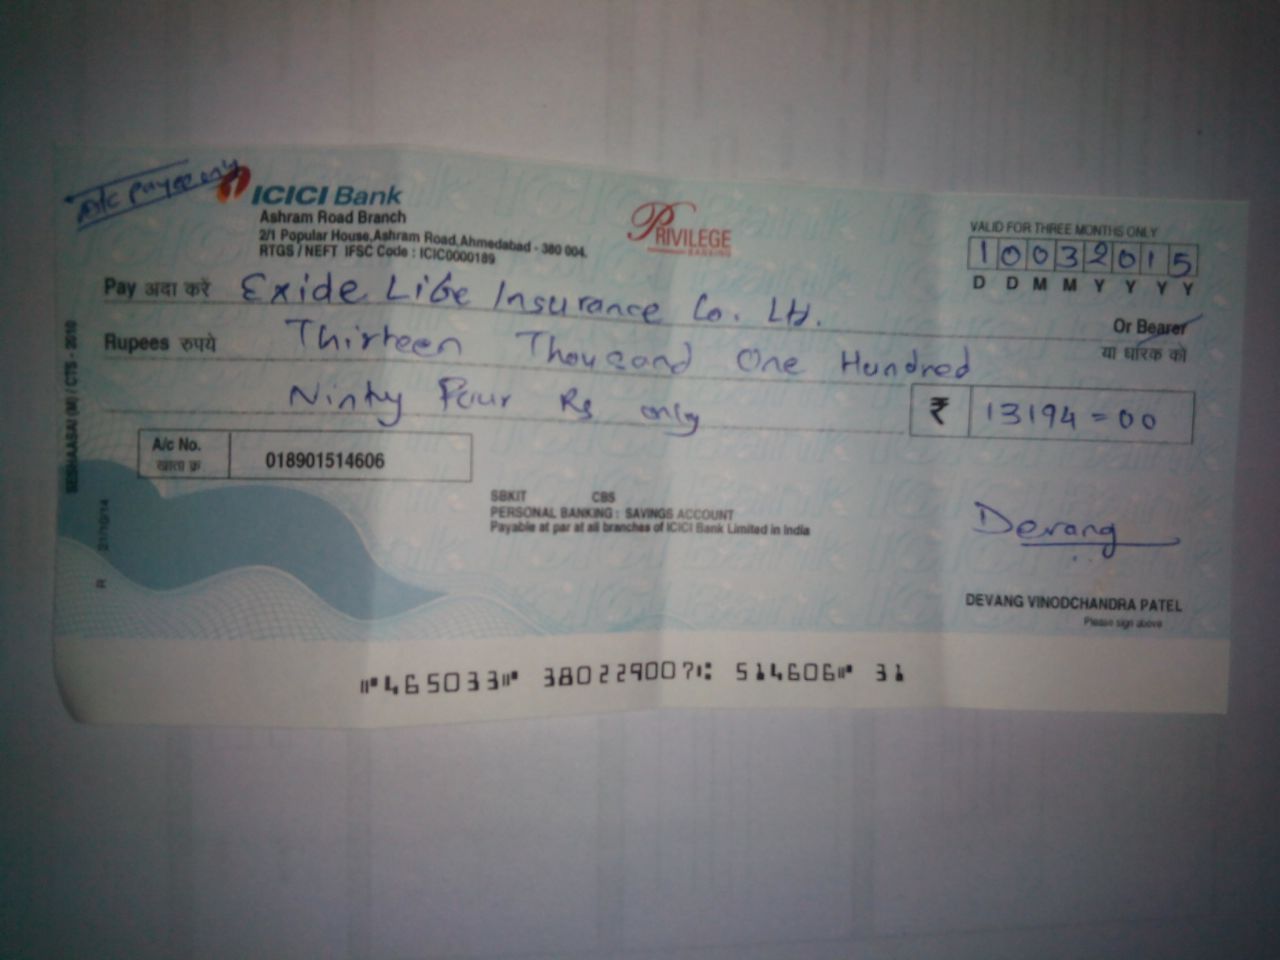 A/c Payee only
ICICI Bank
Ashram Road Branch
2/1 Popular House,Ashram Road,Ahmedabad - 380 004.
RTGS / NEFT IFSC Code : ICIC0000189
PRIVILEGE
BANKING
VALID FOR THREE MONTHS ONLY
10032015
D D M M Y Y Y Y
Pay अदा करें Exide Life Insurance Co. Ltd.
Or Bearer
या धारक को
Rupees रुपये Thirteen Thousand One Hundred
Ninty Four Rs only
₹ 13194=00
A/c No.
खाता क्र.
018901514606
SBKIT CBS
PERSONAL BANKING : SAVINGS ACCOUNT
Payable at par at all branches of ICICI Bank Limited in India
Devang
DEVANG VINODCHANDRA PATEL
Please sign above
SESHAASAI (M) / CTS - 2010
R 21/10/14
⑈465033⑈ 380229007⑆ 514606⑈ 31